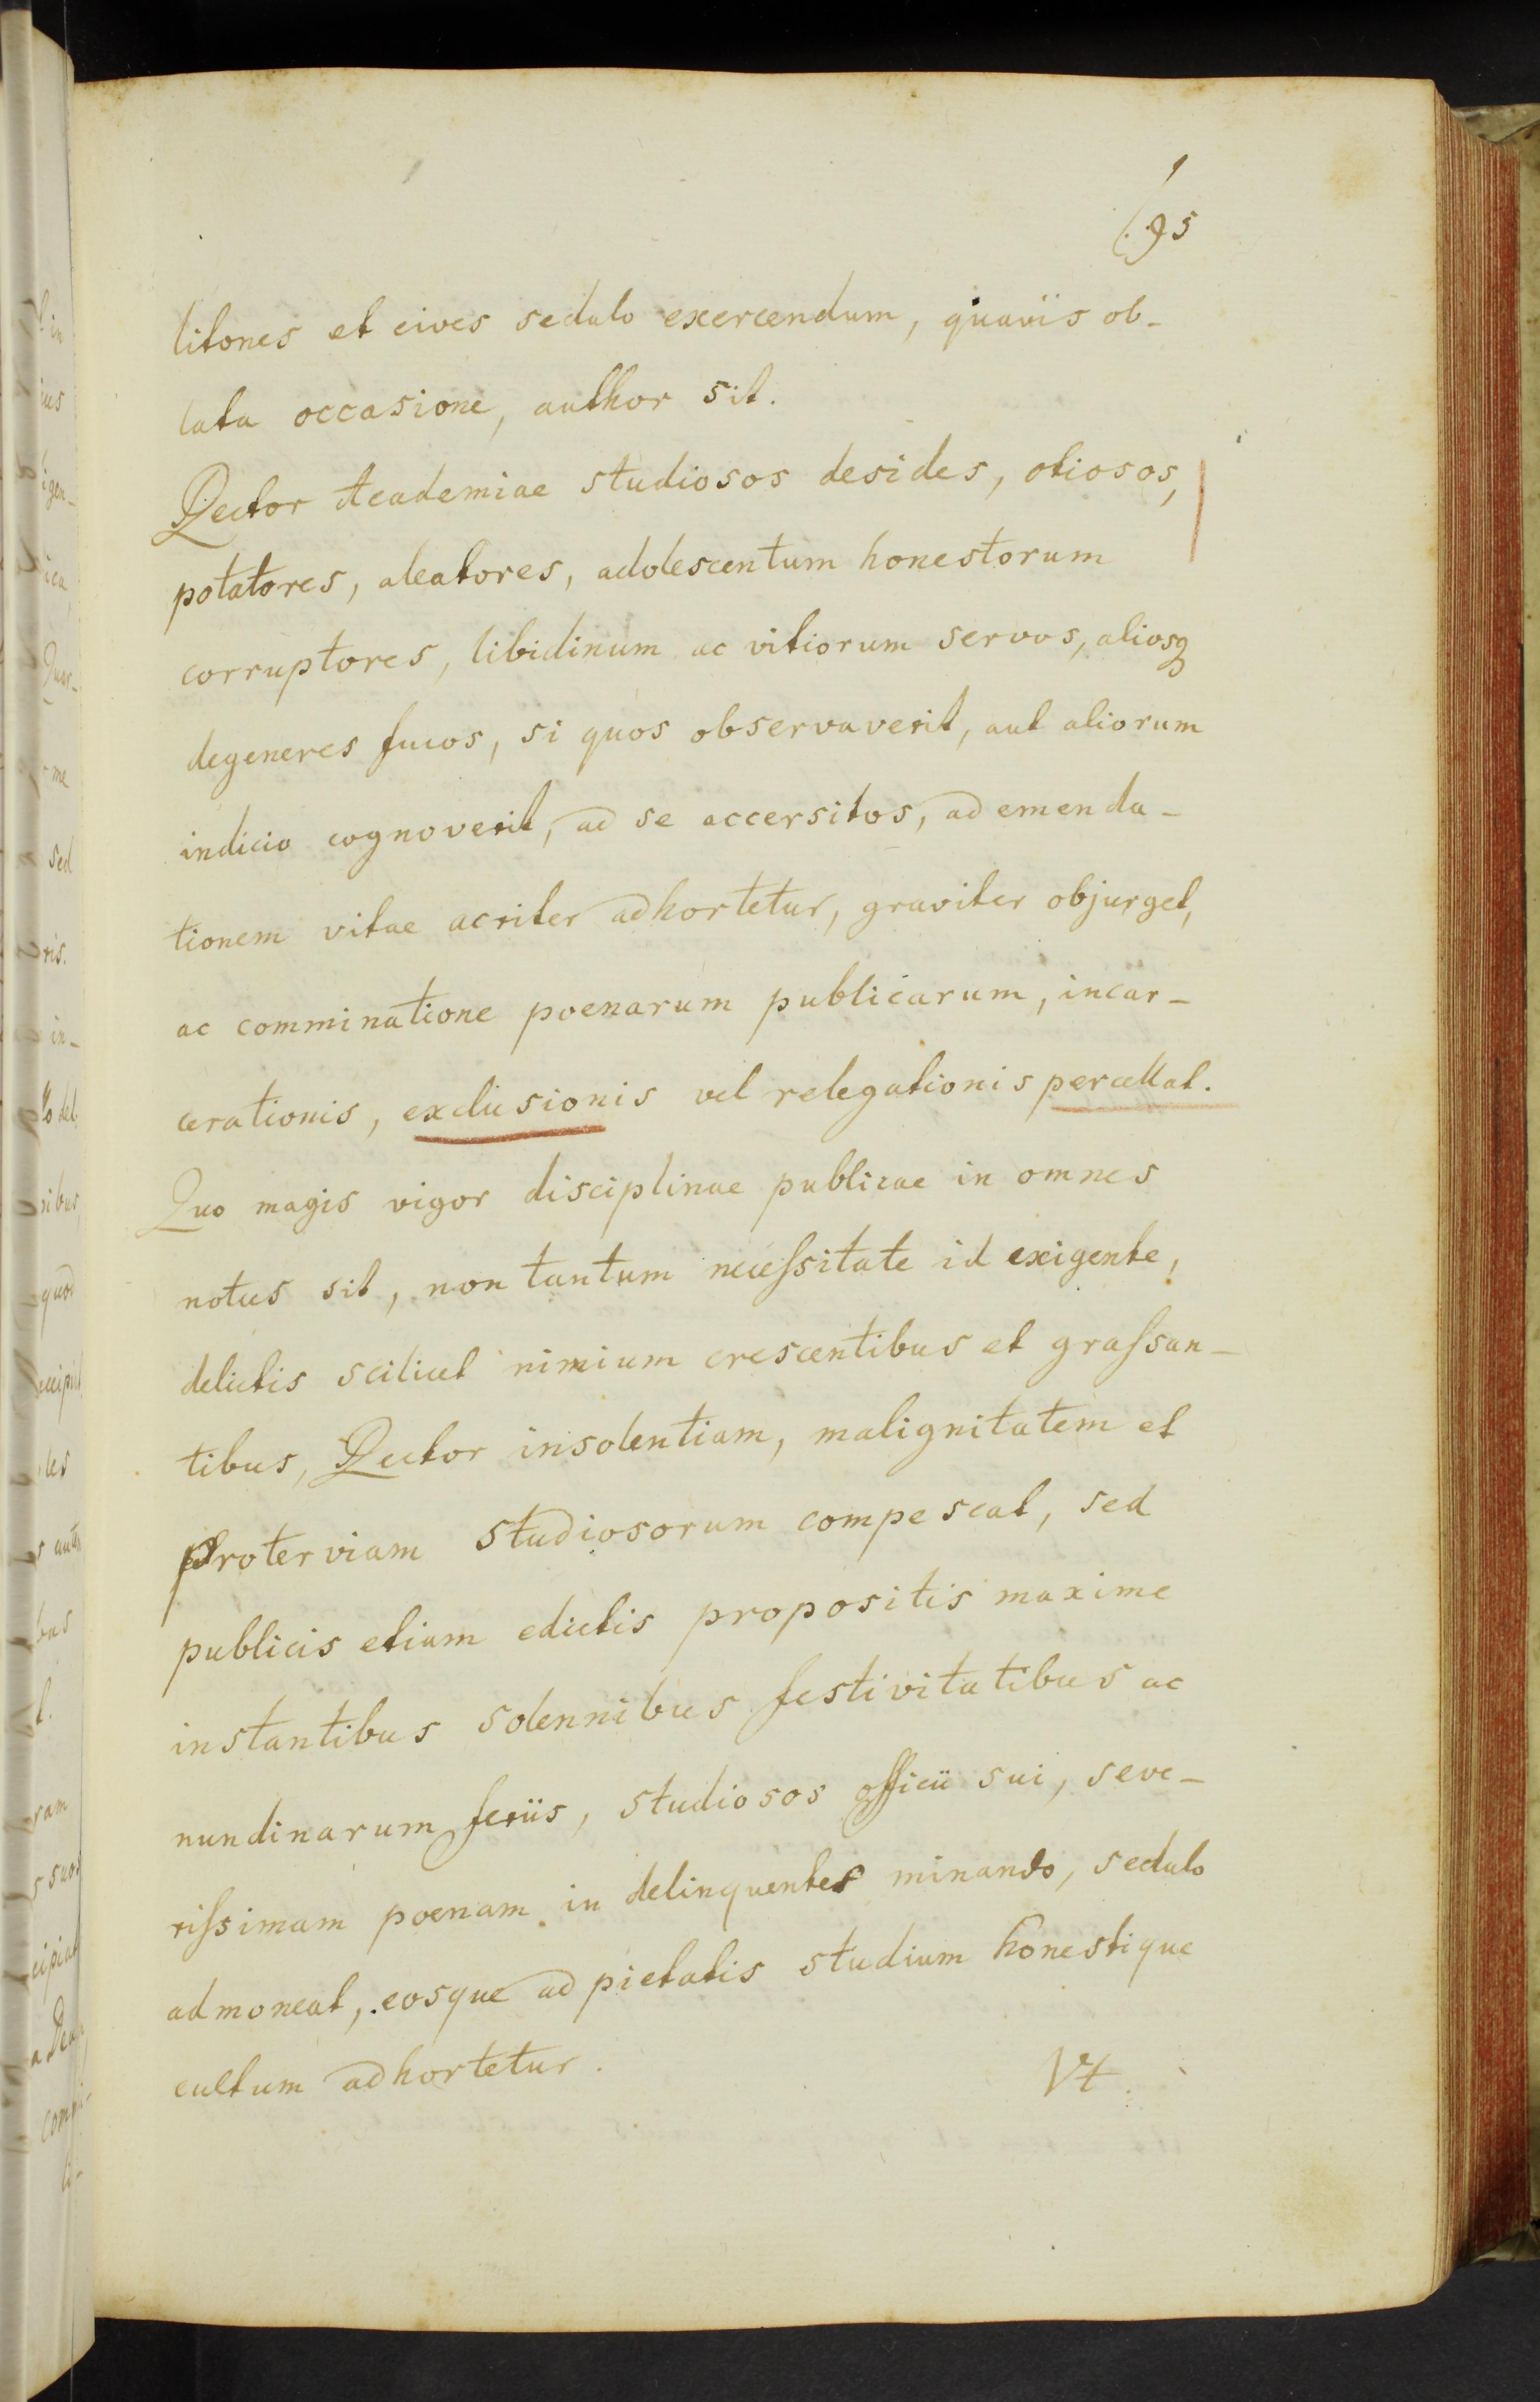 95
litones et cives sedulo exercendum, quavis ob-
lata occasione, author sit.
Rector Academiae studiosos desides, otiosos,
potatores, aleatores, adolescentum honestorum
corruptores, libidinum ac vitiorum servos, aliosq
degeneres fucos, si quos observaverit, aut aliorum
indicio cognoverit, ad se accersitos, ad emenda-
tionem vitae acriter adhortetur, graviter objurget,
ac comminatione poenarum publicarum, incar-
cerationis, exclusionis vel relegationis percellat.
Quo magis vigor disciplinae publicae in omnes
notus sit, non tantum necessitate id exigente,
delictis scilicet nimium crescentibus et grassan-
tibus, Rector insolentiam, malignitatem et
proterviam studiosorum compescat, sed
publicis etiam edictis propositis maxime
instantibus solennibus festivitatibus ac
nundinarum feriis, studiosos officii sui, seve-
rissimam poenam in delinquentes minando, sedulo
admoneat, eosque ad pietatis studium honestique
cultum adhortetur.
Vt